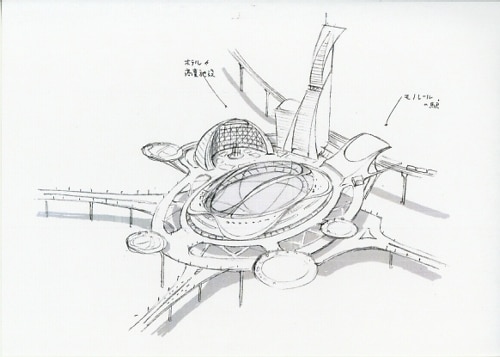 ホテル &
商業施設
モノレール
の駅